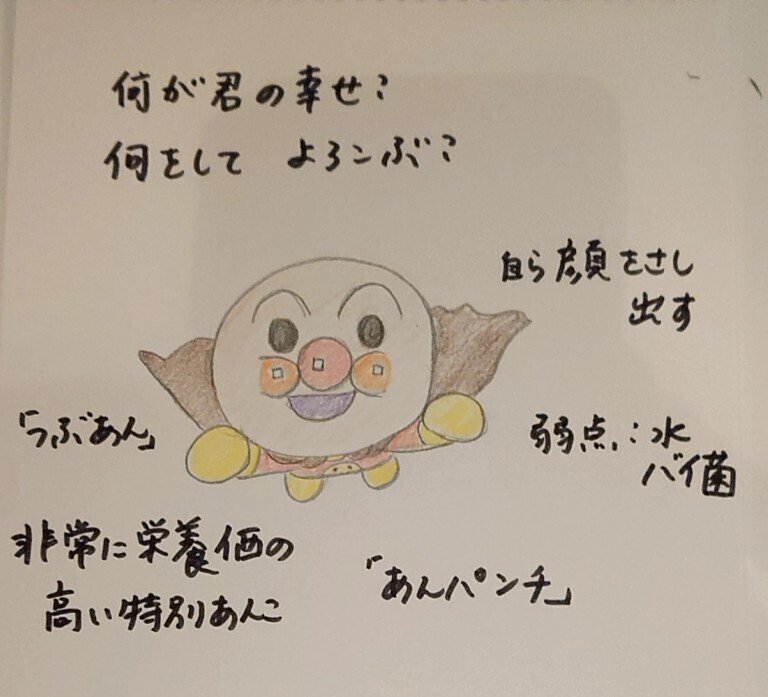 何が君の幸せ?
何をして よろこぶ?
自ら顔をさし
出す
「つぶあん」
弱点:水
バイ菌
非常に栄養価の
高い特別あんこ
「あんパンチ」